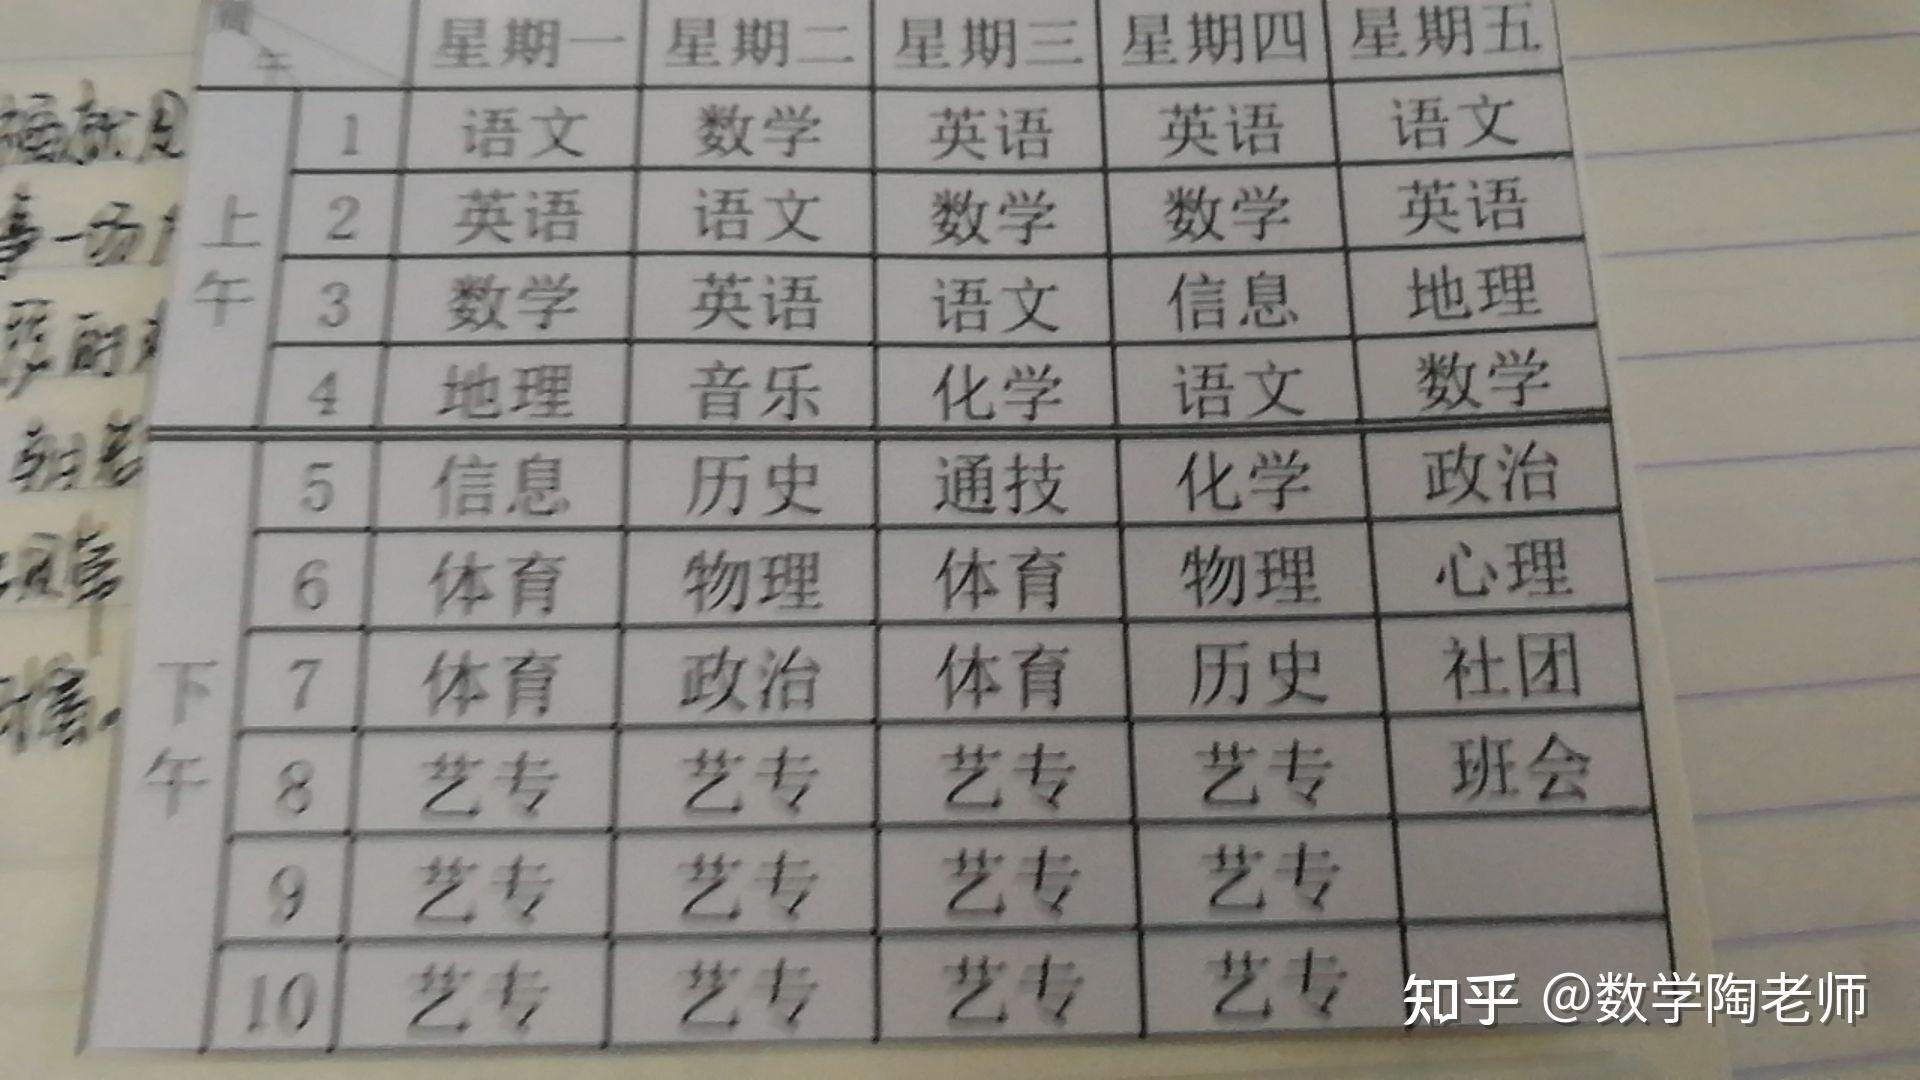 午 星期一 星期二 星期三 星期四 星期五
上午
1 语文 数学 英语 英语 语文
2 英语 语文 数学 数学 英语
3 数学 英语 语文 信息 地理
4 地理 音乐 化学 语文 数学
下午
5 信息 历史 通技 化学 政治
6 体育 物理 体育 物理 心理
7 体育 政治 体育 历史 社团
8 艺专 艺专 艺专 艺专 班会
9 艺专 艺专 艺专 艺专
10 艺专 艺专 艺专 艺专
知乎 @数学陶老师